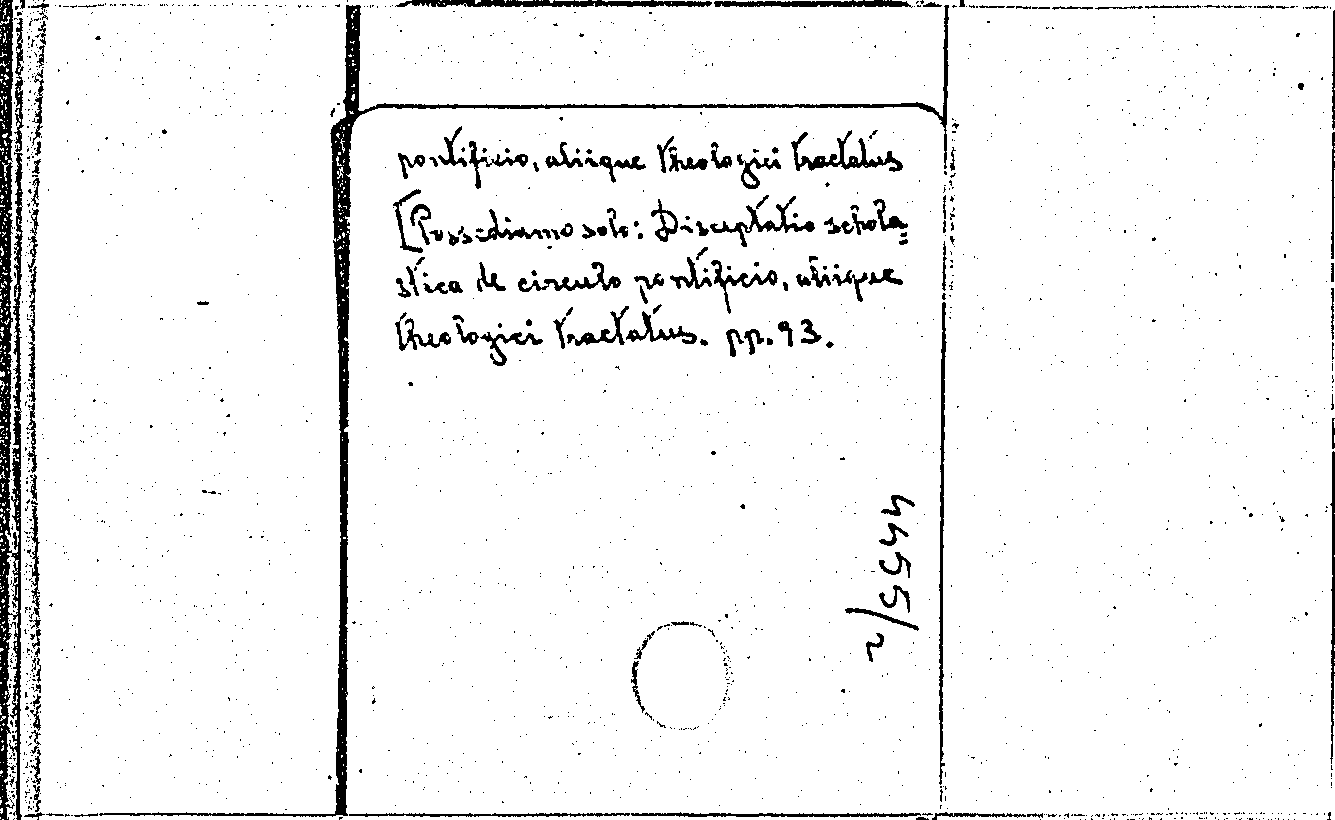 pontificio, aliique theologici tractatus
[Possediamo solo: Disceptatio schola=
stica de circulo pontificio, aliique
theologici tractatus. pp. 93.
4455/2